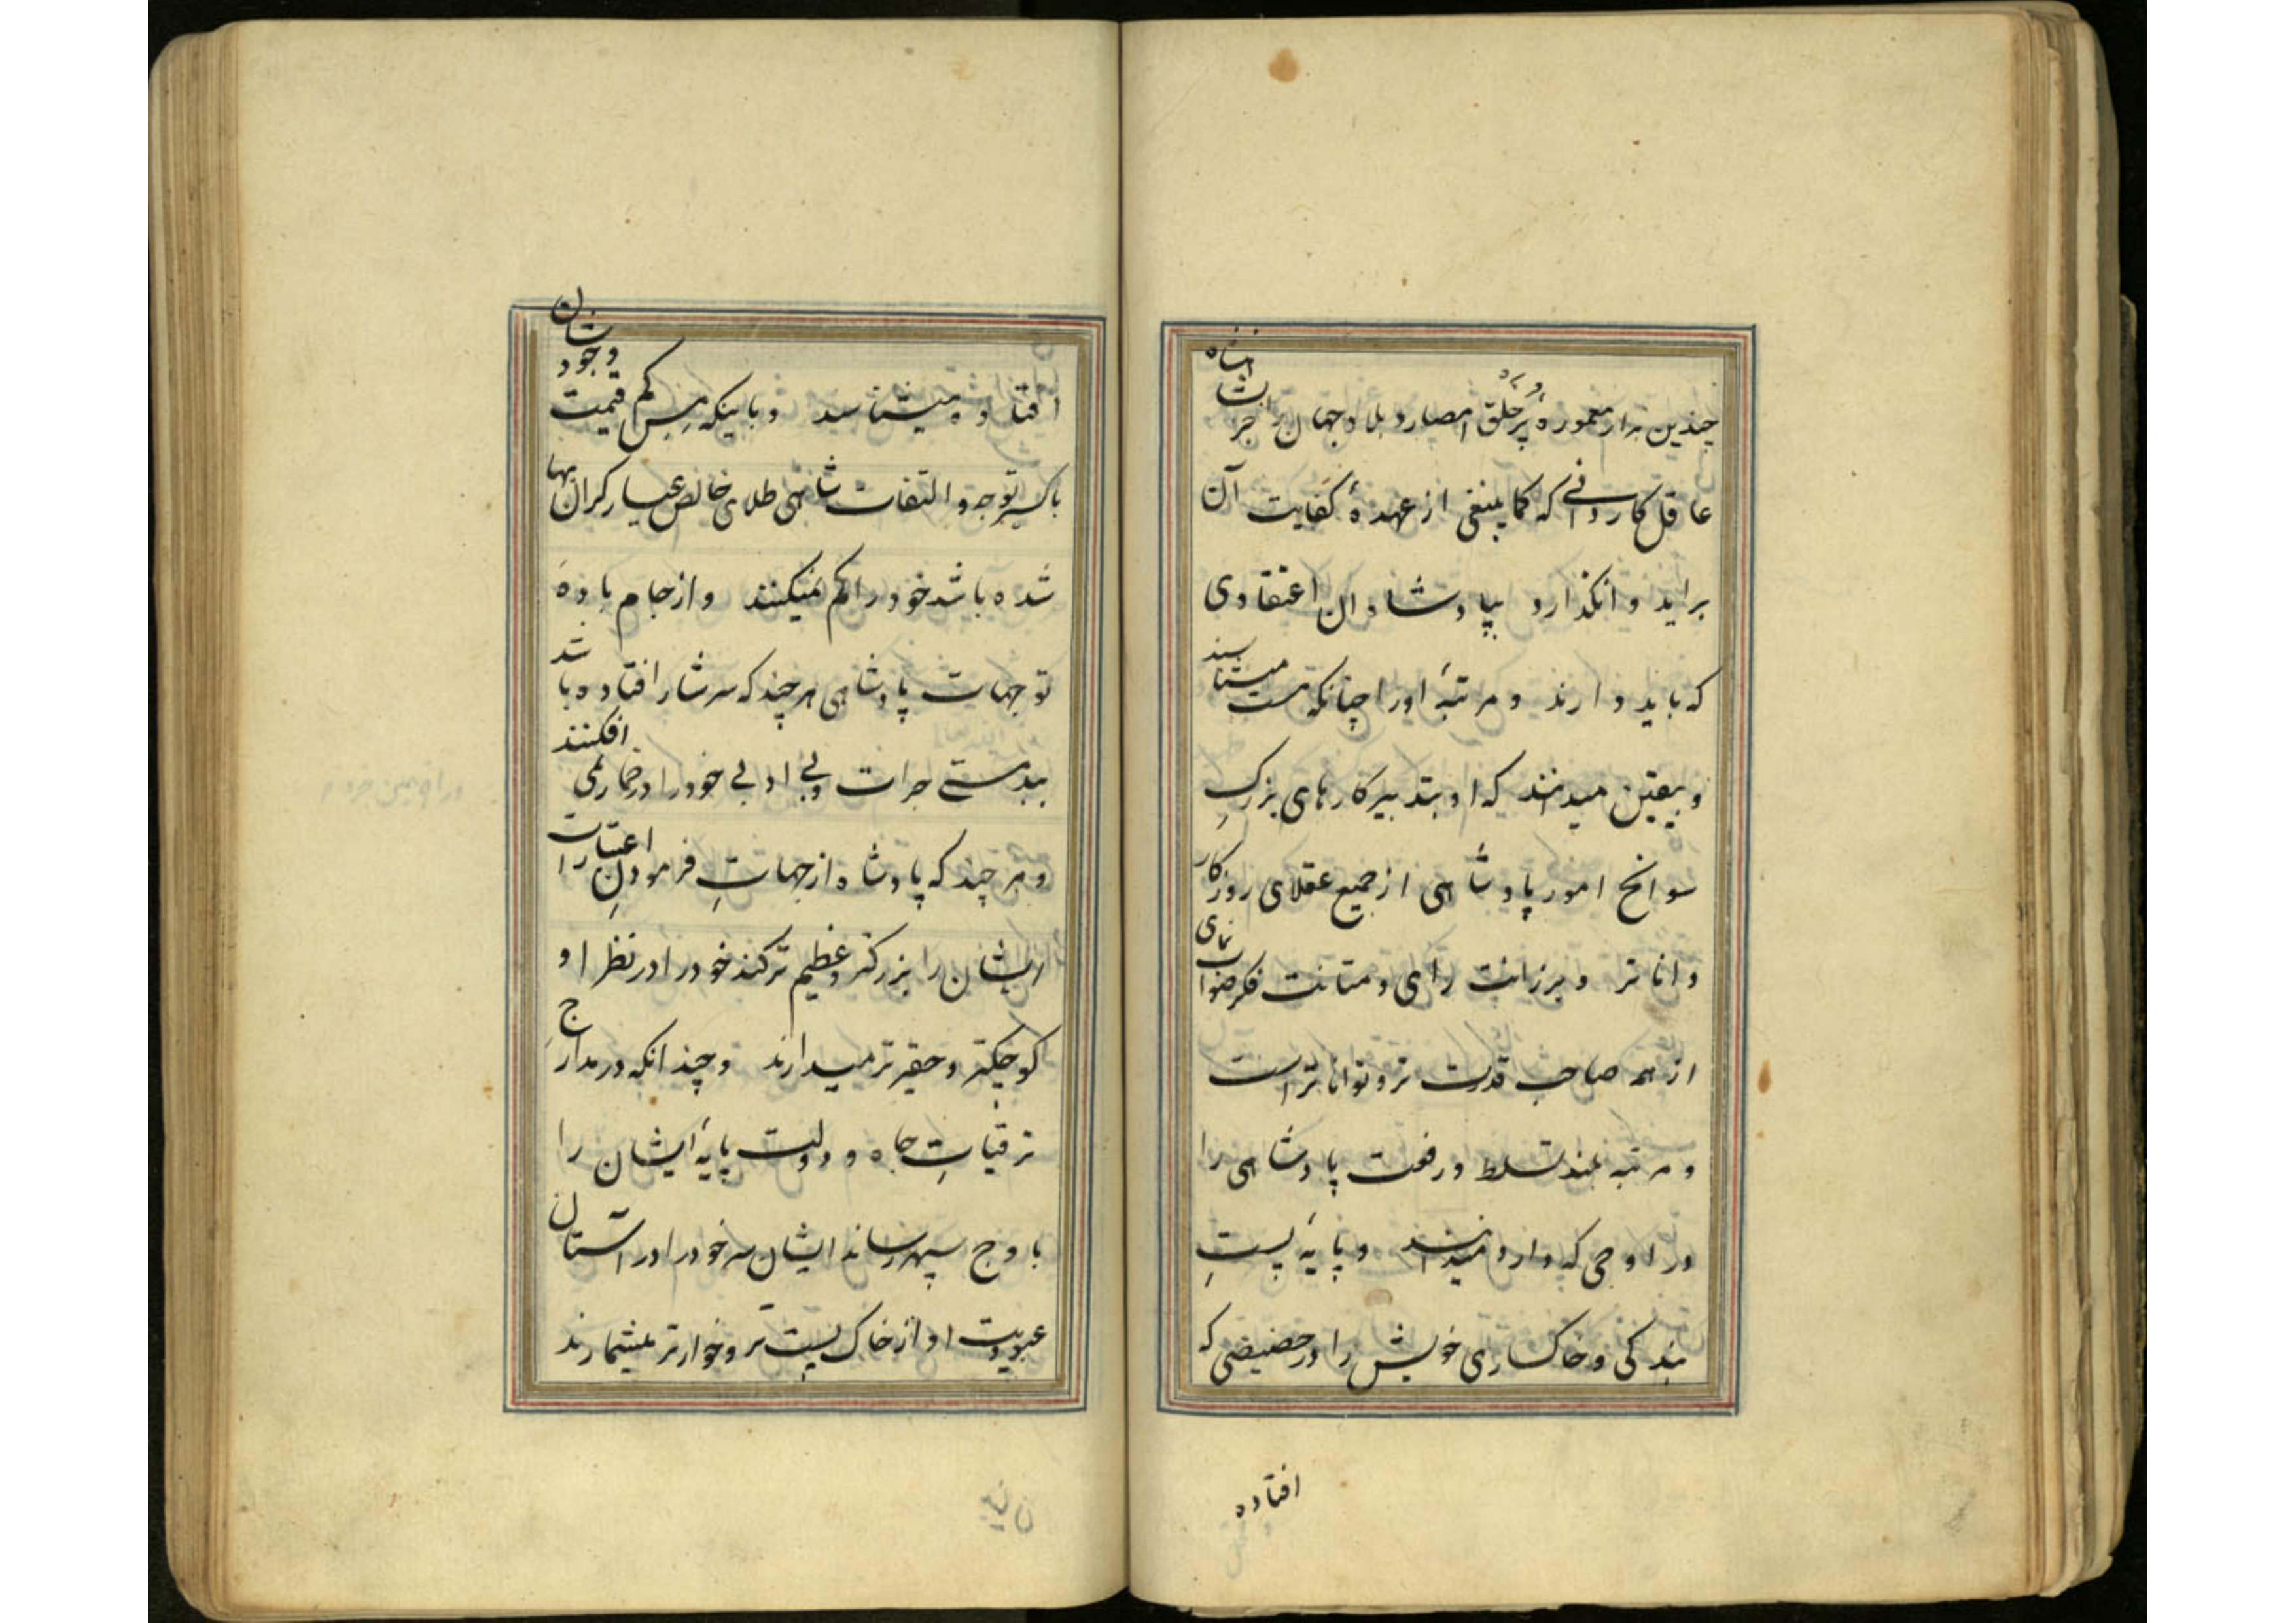 چندین هزار معموره پُر خلق امصار و بلاد جهان را جز بشاهنشاه
عاقل کاردانے که کما ینبغی از عهدهٔ کفایت آن
براید وانگذارد بپادشاهان اعتقادی
که باید دارند و مرتبهٔ او را چنانکه هست میشناسند
و بیقین میدانند که او بتدبیر کارهای بزرگِ
سوانح امور پادشاهی از جمیع عقلای روزکار
داناتر و برزانت رای و متانت فکر صواب نمای
از همه صاحب قدرت تر و تواناتر است
و مرتبه بلند تسلط و رفعت پادشاهی را
در اوجی که دارد میدانند و پایهٔ پستِ
بندکی و خاکساری خویش را در حضیضی که
افتاده
افتاده میشناسند و با اینکه مِس کم قیمت وجودشان
باکسیر توجه و التفات شاهی طلای خالص عیار کران بها
شده باشد خود را کم نمیکنند و از جام بادهٔ
توجهات پادشاهی هر چند که سرشار افتاده باشد
ببدمستے جرات و بے ادبے خود را در خمار نمی افکنند
و هر چند که پادشاه از جهاتِ فرمودنِ اعتبارات
ایشان را بزرکتر و عظیم تر کند خود را در نظر او
کوچکتر و حقیرتر میدارند و چندانکه در مدارجِ
ترقیاتِ جاه و دولت پایهٔ ایشان را
باوج سپهر رساند ایشان سر خود را در آستان
عبودیت او از خاک پست تر و خوارتر میشمارند